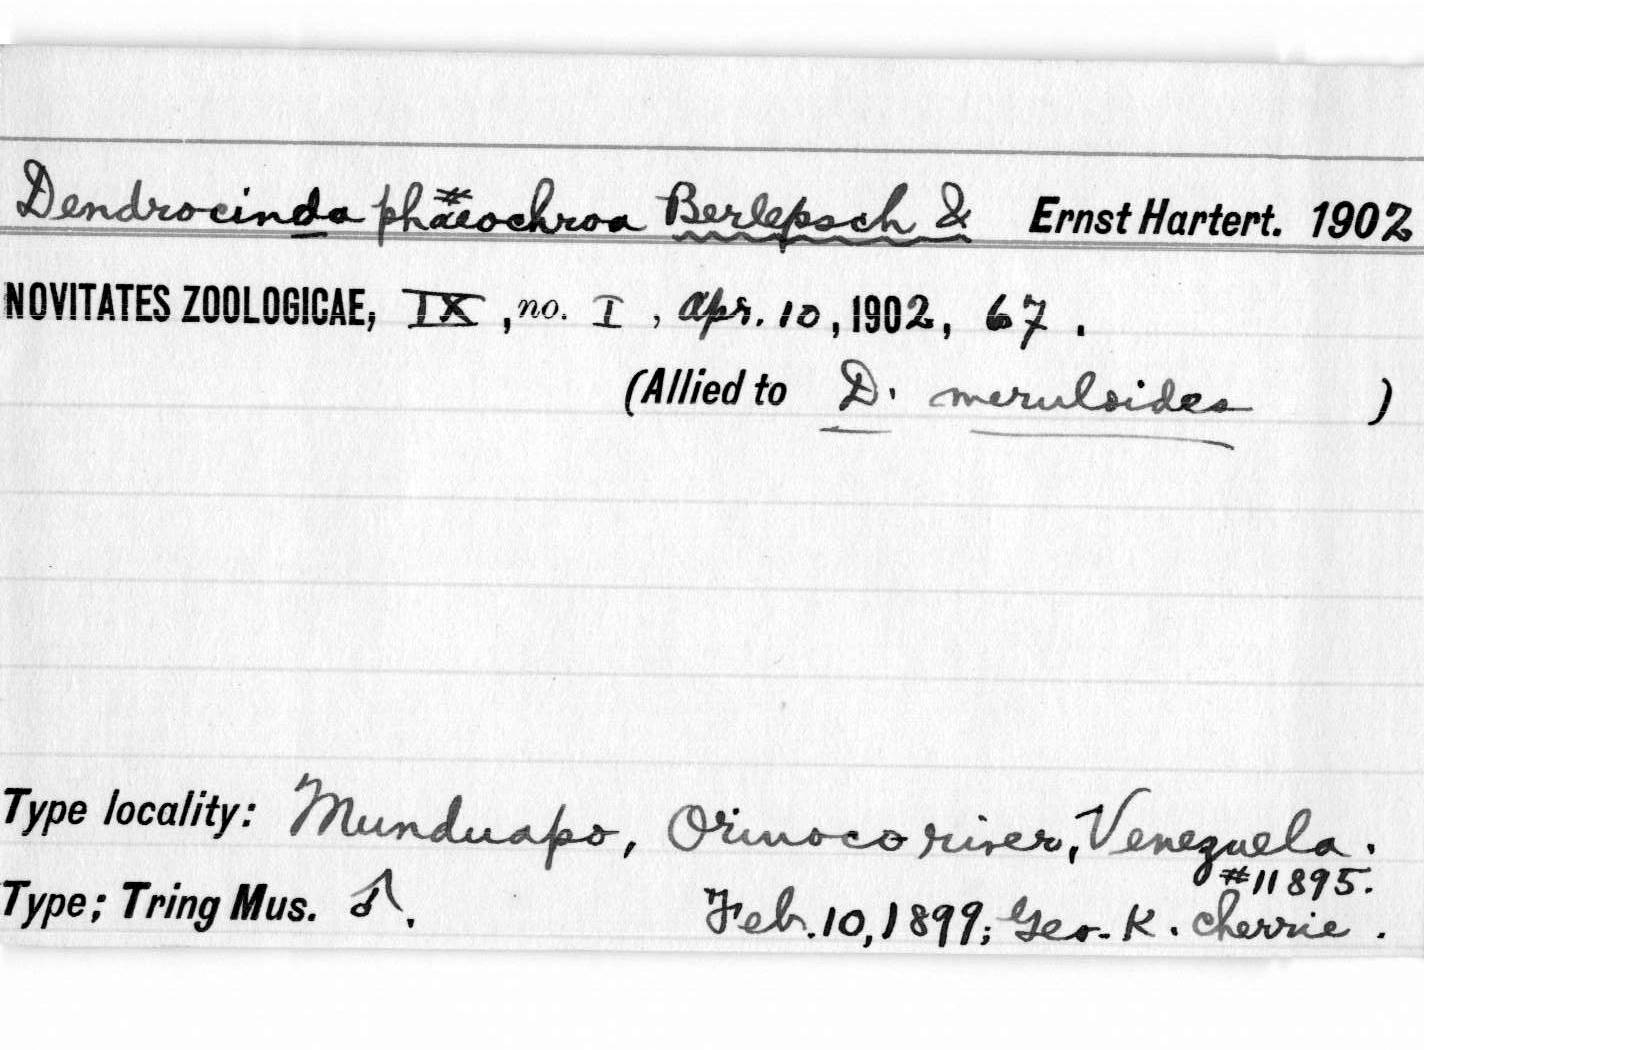 Dendrocincla phaeochroa Berlepsch & Ernst Hartert. 1902
NOVITATES ZOOLOGICAE, IX, no. I, Apr. 10, 1902, 67.
(Allied to D. meruloides )
Type locality: Munduapo, Orinoco river, Venezuela.
#11895.
Type; Tring Mus. ♂. Feb. 10, 1899; Geo. K. Cherrie.